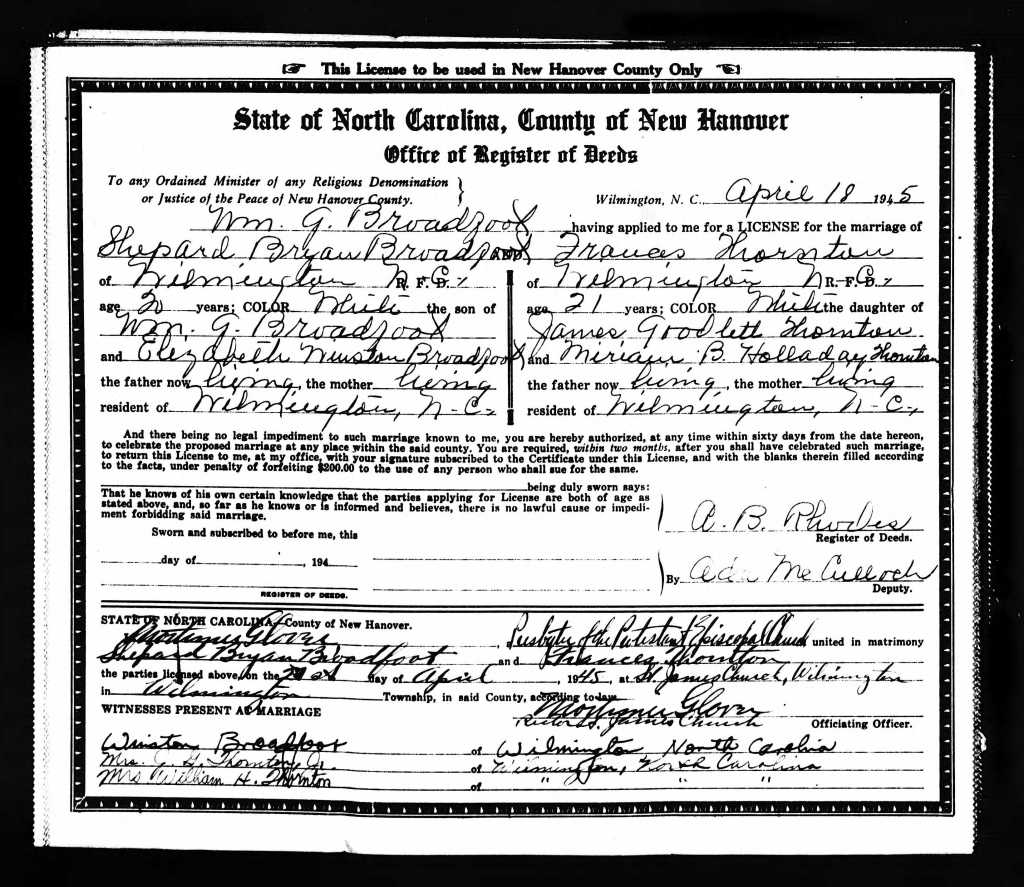 This License to be used in New Hanover County Only
State of North Carolina, County of New Hanover
Office of Register of Deeds
To any Ordained Minister of any Religious Denomination
or Justice of the Peace of New Hanover County.
Wilmington, N. C. April 18 1945
Wm. G. Broadfoot having applied to me for a LICENSE for the marriage of
Shepard Bryan Broadfoot AND Frances Thornton
of Wilmington N.C. R. F. D. of Wilmington N.C. R. F. D.
age 20 years; COLOR White the son of age 21 years; COLOR White the daughter of
Wm. G. Broadfoot James Goodlett Thornton
and Elizabeth Winston Broadfoot and Miriam B. Holladay Thornton
the father now living, the mother living the father now living, the mother living
resident of Wilmington, N.C. resident of Wilmington, N.C.
And there being no legal impediment to such marriage known to me, you are hereby authorized, at any time within sixty days from the date hereon,
to celebrate the proposed marriage at any place within the said county. You are required, within two months, after you shall have celebrated such marriage,
to return this License to me, at my office, with your signature subscribed to the Certificate under this License, and with the blanks therein filled according
to the facts, under penalty of forfeiting $200.00 to the use of any person who shall sue for the same.
being duly sworn says:
That he knows of his own certain knowledge that the parties applying for License are both of age as
stated above, and, so far as he knows or is informed and believes, there is no lawful cause or impedi-
ment forbidding said marriage.
A. B. Rhodes
Register of Deeds.
Sworn and subscribed to before me, this
day of , 194
REGISTER OF DEEDS.
By Ada McCulloch
Deputy.
STATE OF NORTH CAROLINA, County of New Hanover.
Mortimer Glover Presbyter of the Protestant Episcopal Church united in matrimony
Shepard Bryan Broadfoot and Frances Thornton
the parties licensed above, on the 21st day of April, 1945, at St. James Church, Wilmington
in Wilmington Township, in said County, according to law.
Mortimer Glover
WITNESSES PRESENT AT MARRIAGE Rector St. James Church Officiating Officer.
Winston Broadfoot of Wilmington, North Carolina
Mrs. J. G. Thornton Jr. of Wilmington, North Carolina
Mrs William H. Thornton of " " "